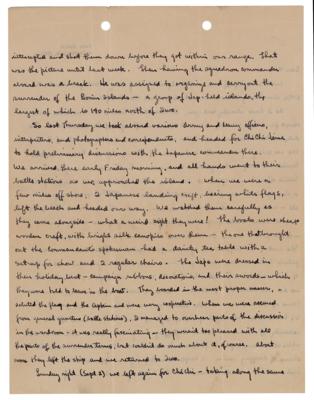 intercepted and shot them down before they got within our range. That
was the picture until last week. Then having the squadron commander
aboard was a break. He was assigned to organize and carry out the
surrender of the Bonin Islands - a group of Jap-held islands, the
largest of which is 190 miles north of Iwo.
So last Thursday we took aboard various army and navy officers,
interpreters, and photographers and correspondents, and headed for ChiChi Jima
to hold preliminary discussions with the Japanese commanders there.
We arrived there early Friday morning, and all hands went to their
battle stations as we approached the island. When we were a
few miles off shore, 2 Japanese landing craft, bearing white flags,
left the beach and headed our way. We watched them carefully as
they came alongside - what a weird sight they were! The boats were cheap
wooden craft, with bright silk canopies over them - the one that brought
out the commander's spokesman had a dainty tea table with a
set-up for chow and 2 regular chairs. The Japs were dressed in
their holiday best - campaign ribbons, decorations, and their swords - which
they were told to leave in the boat. They boarded in the most proper manner,
saluted the flag and the Captain and were very cooperative. When we were secured
from general quarters (battle stations), I managed to overhear parts of the discussions
in the wardroom - it was really fascinating - they weren't too pleased with all
the parts of the surrender terms, but couldn't do much about it, of course. About
noon they left the ship and we returned to Iwo.
Sunday night (Sept 2) we left again for ChiChi - taking along the same